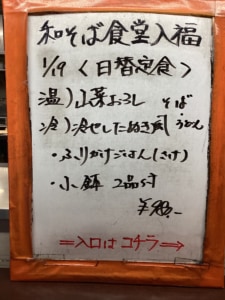 和そば食堂入福
1/19 〈日替定食〉
温）山菜おろし そば
冷）冷やしたぬき うどん
・ふりかけごはん（さけ）
・小鉢 2品付
⇒入口は コチラ→